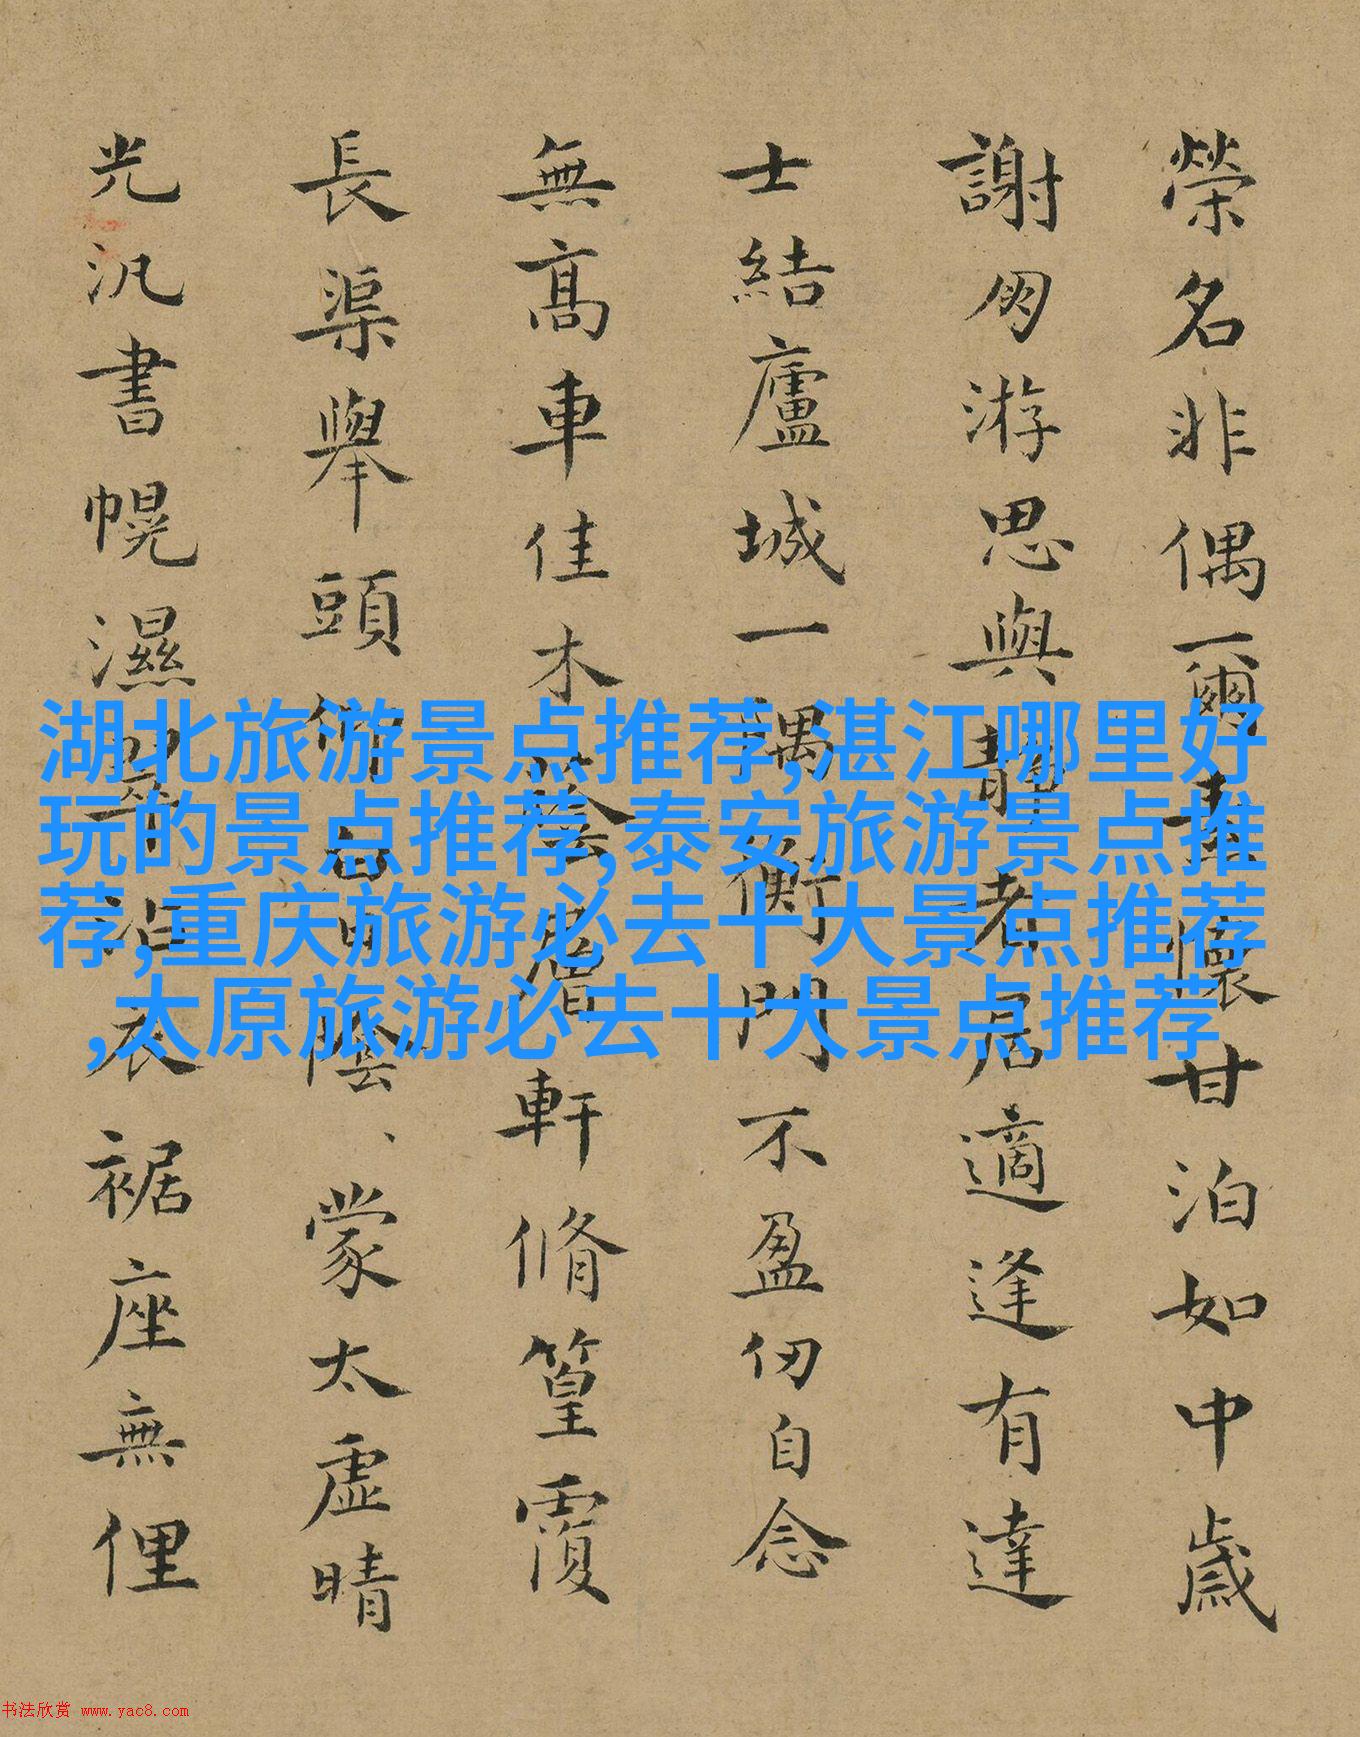 榮名非偶爾素懷甘泊如中歲
謝朋游思與靜者居適逢有達
士結廬城一隅衡門不盈仞自念
無高車佳木蔭層軒脩篁覆
長渠舉頭陰蒙太虛晴
光汎書幌濕翠沾衣裾座無俚
湖北旅游景点推荐,湛江哪里好
玩的景点推荐,泰安旅游景点推
荐,重庆旅游必去十大景点推荐
,太原旅游必去十大景点推荐
书法欣赏 www.yac8.com